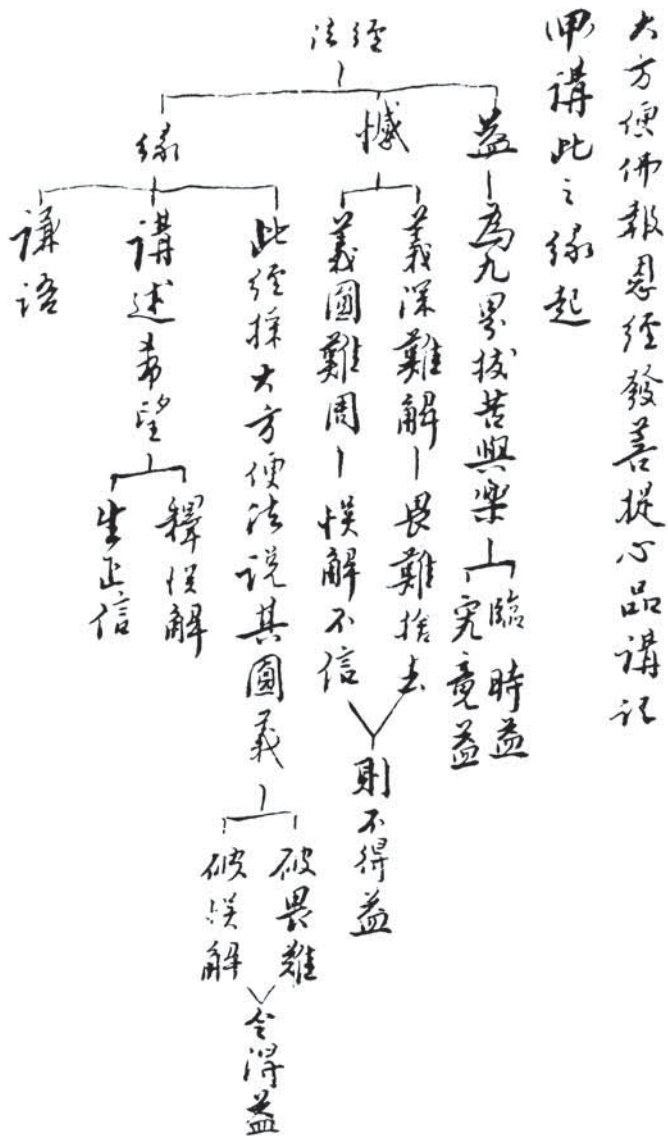 大方便佛報恩經發菩提心品講記
甲講此之緣起
經法
益
為九界拔苦與樂
臨時益
究竟益
憾
義深難解
畏難捨去
義圓難周
悞解不信
則不得益
緣
此經採大方便法說其圓義
破畏難
破悞解
令得益
講述希望
釋悞解
生正信
講語